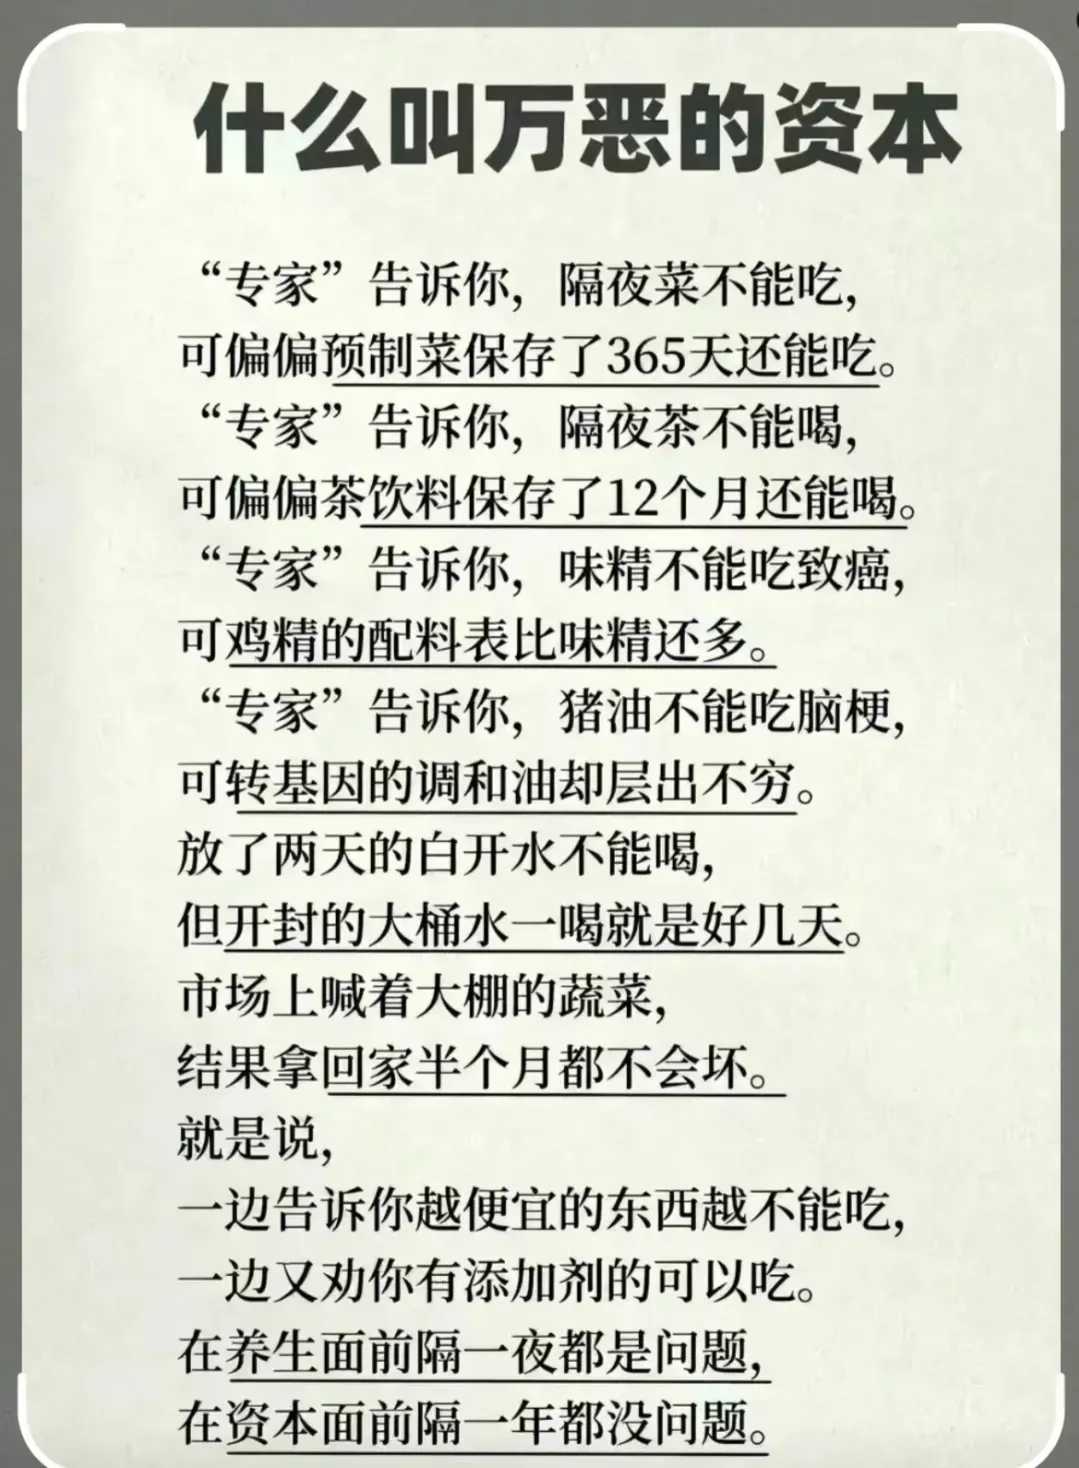 什么叫万恶的资本
“专家”告诉你，隔夜菜不能吃，
可偏偏预制菜保存了365天还能吃。
“专家”告诉你，隔夜茶不能喝，
可偏偏茶饮料保存了12个月还能喝。
“专家”告诉你，味精不能吃致癌，
可鸡精的配料表比味精还多。
“专家”告诉你，猪油不能吃脑梗，
可转基因的调和油却层出不穷。
放了两天的白开水不能喝，
但开封的大桶水一喝就是好几天。
市场上喊着大棚的蔬菜，
结果拿回家半个月都不会坏。
就是说，
一边告诉你越便宜的东西越不能吃，
一边又劝你有添加剂的可以吃。
在养生面前隔一夜都是问题，
在资本面前隔一年都没问题。